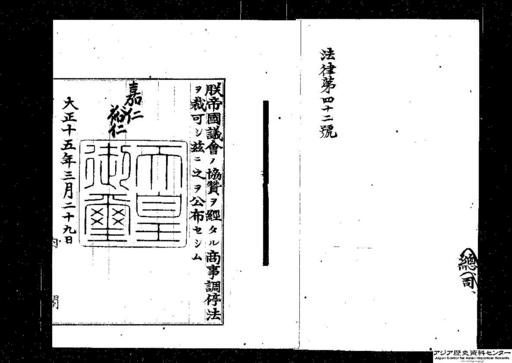 法律第四十二號
朕帝國議會ノ協賛ヲ經タル商事調停法
ヲ裁可シ玆ニ之ヲ公布セシム
嘉仁
裕仁
天皇
御璽
大正十五年三月二十九日
内閣
アジア歴史資料センター
Japan Center for Asian Historical Records